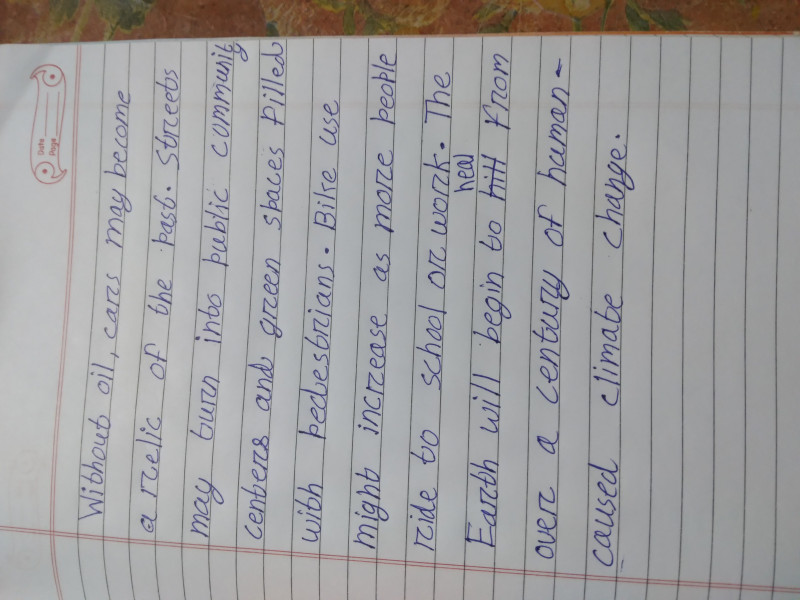 Date
Page
Without oil, cars may become
a relic of the past. Streets
may turn into public community
centers and green spaces filled
with pedestrians. Bike use
might increase as more people
ride to school or work. The
Earth will begin to heal from
over a century of human-
caused climate change.